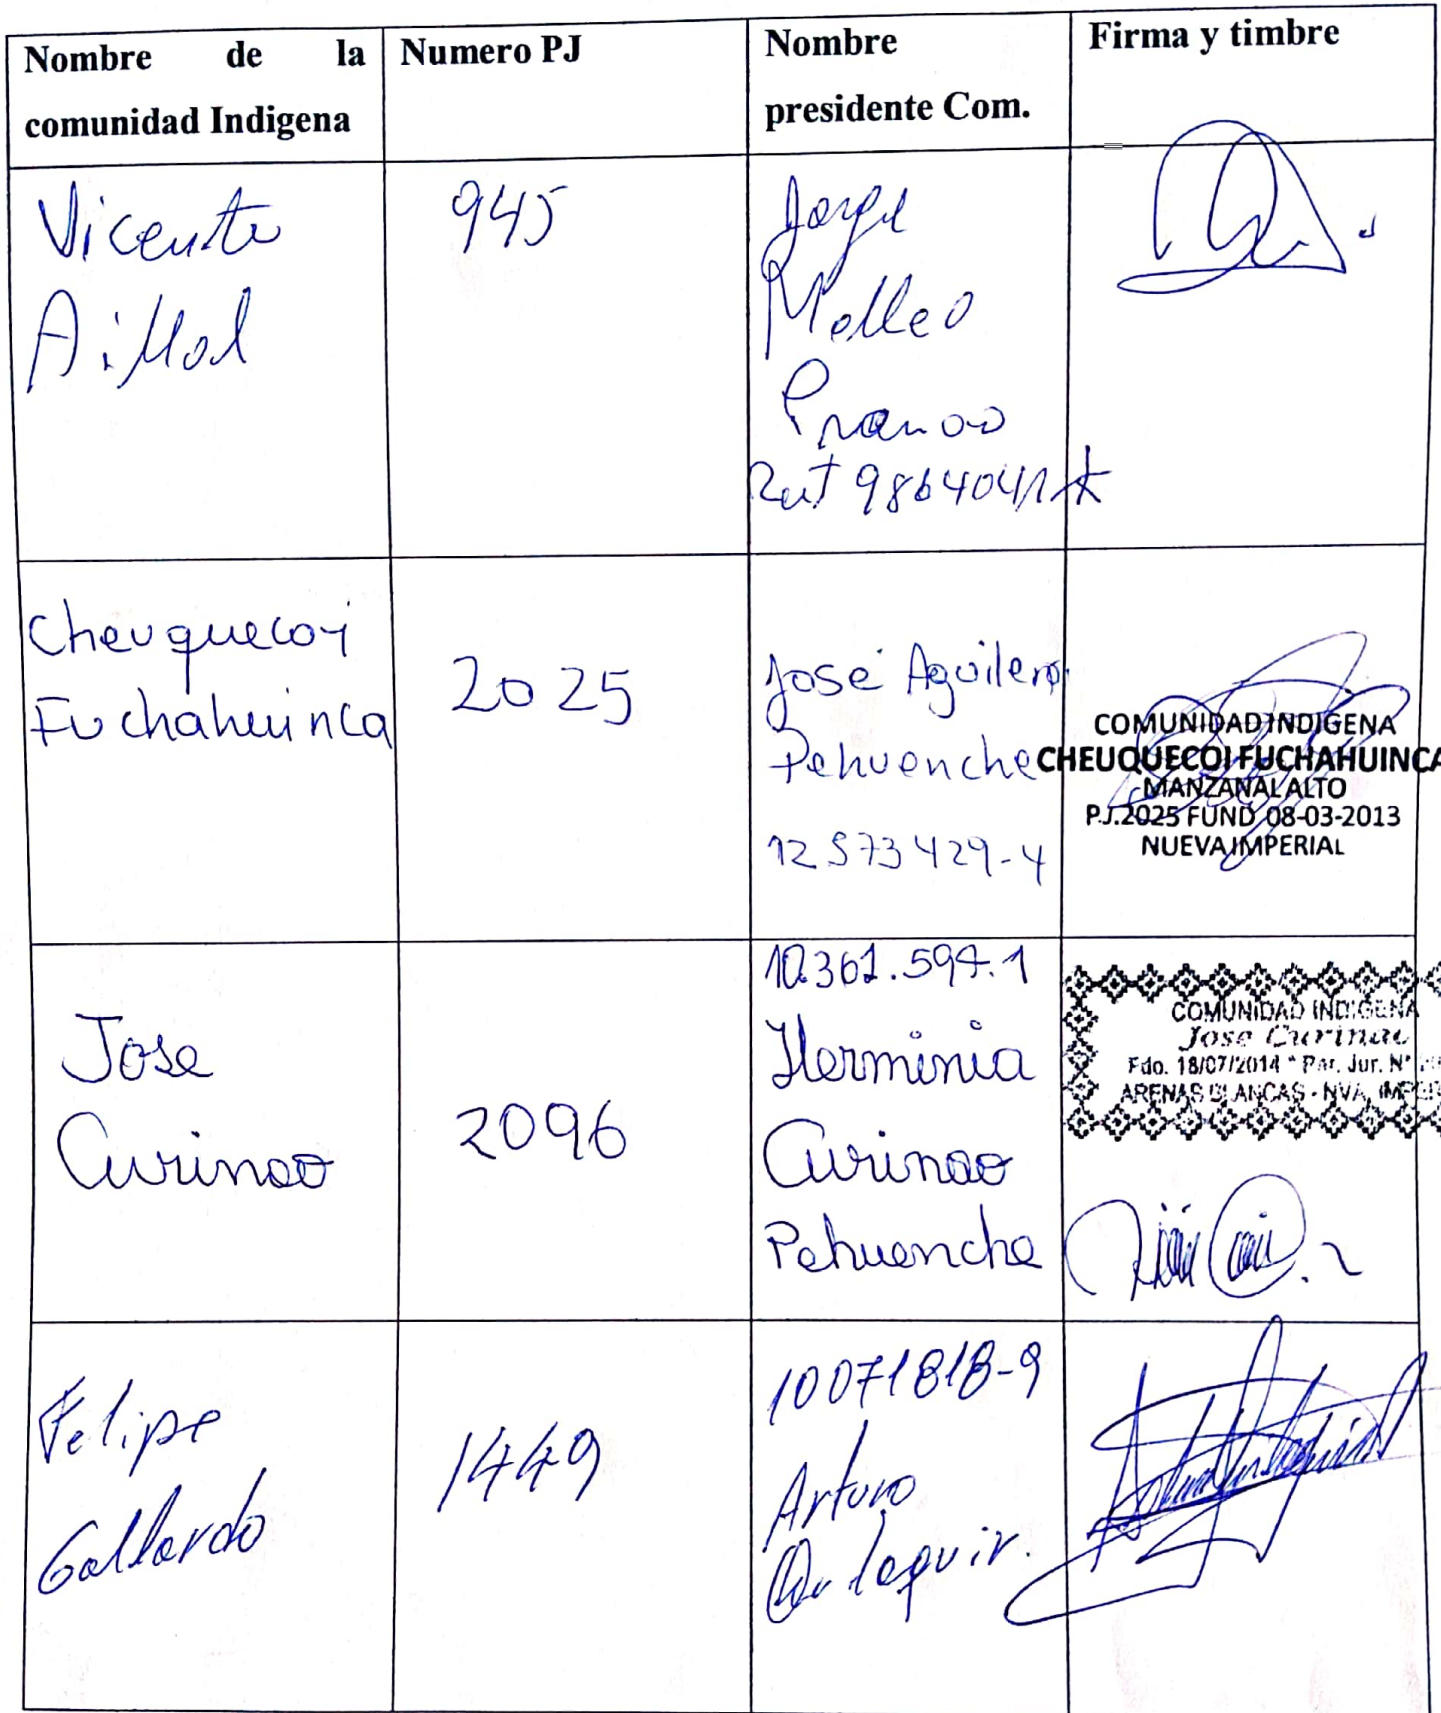 Nombre de la
comunidad Indigena
Numero PJ
Nombre
presidente Com.
Firma y timbre
Vicente
Aillal
945
Jorge
Melleo
Rut 9864041-k
Cheuquecoi
Fuchahuinca
2025
José Aguilera
Pehuenche
12573429-4
COMUNIDAD INDIGENA
CHEUQUECOI FUCHAHUINCA
MANZANAL ALTO
P.J.2025 FUND 08-03-2013
NUEVA IMPERIAL
Jose
Curinao
2096
10.361.594.1
Herminia
Curinao
Pehuenche
COMUNIDAD INDIGENA
Jose Curinao
Fdo. 18/07/2014 * Per. Jur. N°
ARENAS BLANCAS - NVA. IMPER
Felipe
Gallardo
1449
10071818-9
Arturo